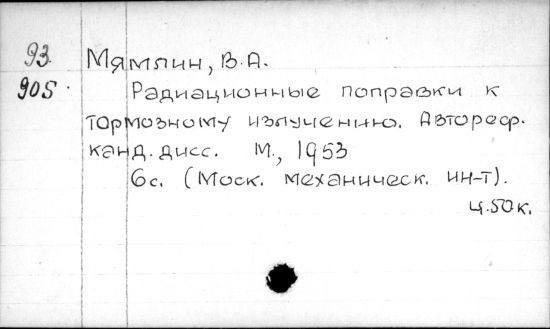 93 Мямлин, В.А.
905 Радиационные поправки к
тормозному излучению. Автореф.
канд. дисс. М., 1953
6с. (Моск. механическ. ин-т).
ц.50к.